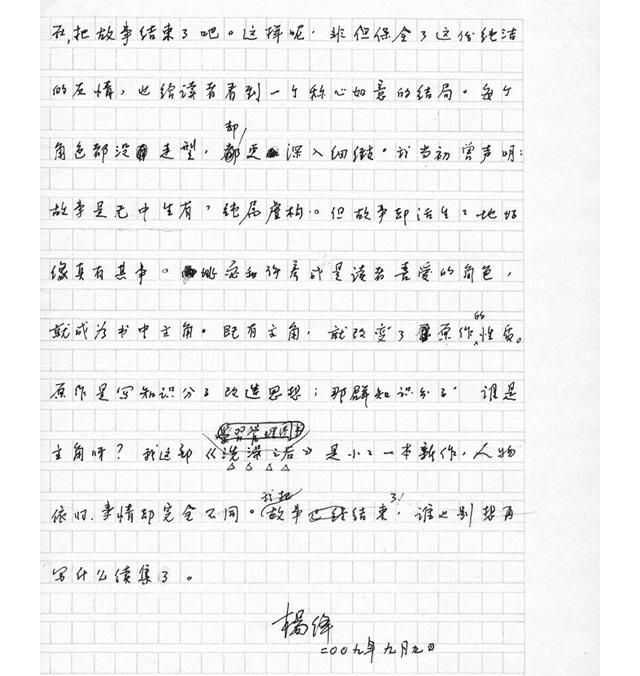 在,把故事结束了吧。这样呢,非但保全了这份纯洁
的友情,也给读者看到一个称心如意的结局。每个
角色都没走型,却更深入细致。我当初曾声明:
故事是无中生有,纯属虚构。但故事却活生々地好
像真有其事。姚宓和许彦成是读者喜爱的角色,
就成为书中主角。既有主角,就改变了原作的性质。
原作是写知识分子改造思想;那群知识分子,谁是
主角呀?我这部《洗澡之后》是小々一本新作,人物
依旧,事情却完全不同。我把故事结束了,谁也别想再
写什么续集了。
楊绛
二〇〇九年九月九日